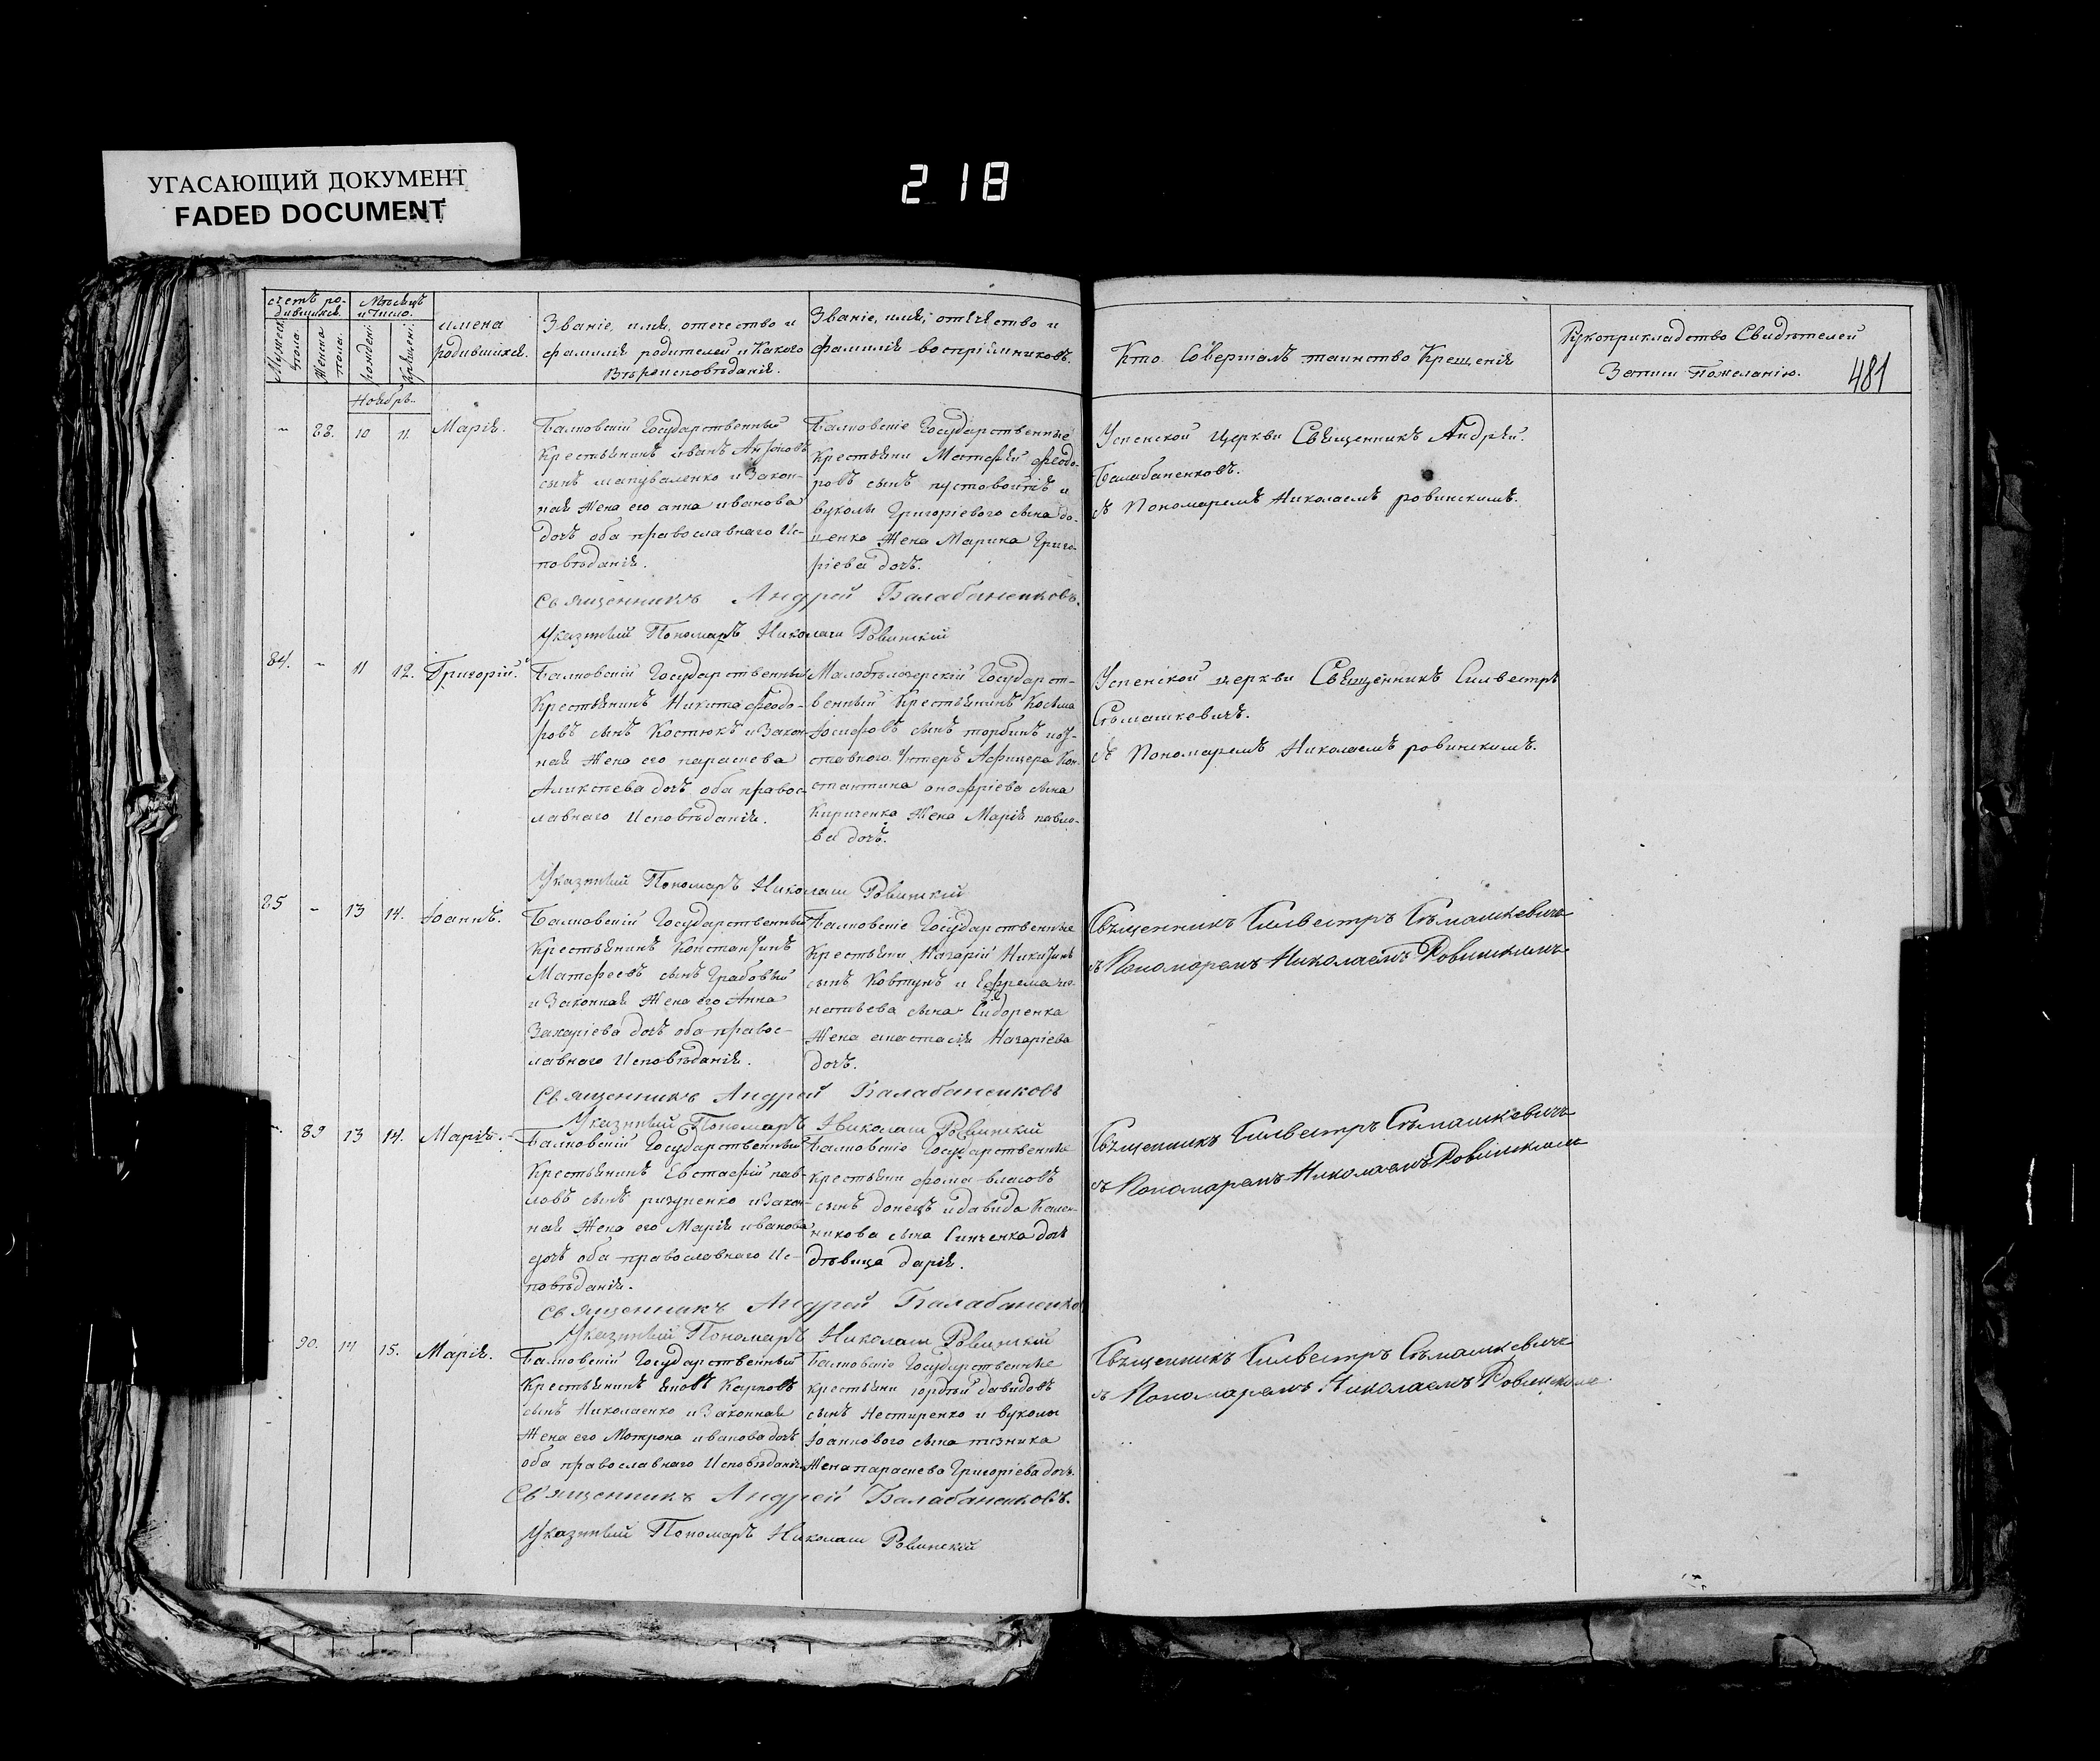 УГАСАЮЩИЙ ДОКУМЕНТ
FADED DOCUMENT
218
481
счетъ ро-
дившихся.
Мужеска
пола.
Женска
пола.
Мѣсяцъ
и число.
рожденi.
крещенi.
имена
родившихся.
Званіе, имя, отечество и
фамилія родителей и какого
Вѣроисповѣданія.
Званіе, имя, отечество и
фамилія воспріимниковъ.
Кто Совершалъ таинство Крещенія
Рукоприкладство Свидѣтелей
Записи по желанію.
Ноябрь.
- 88. 10 11. Марія.
Балковскій Государственный
Крестьянинъ иванъ
сынъ и закон-
ная Жена его анна иванова
дочь оба православнаго Ис-
повѣданія.
Балковскіе Государственные
Крестьяни Матфей феодо-
ровъ сынъ пустовойтъ и
вуколы Григоріевого сына до-
ценка Жена Марина Григо-
ріева дочь.
Успенской Церкви Священникъ Андрей
Балабаненковъ.
съ Пономаремъ Николаемъ ровинскимъ.
Священникъ Андрей Балабаненковъ.
Указный Пономарь Николай Ровинскій
84. - 11 12. Григорій.
Балковскій Государственный
Крестьянинъ Никита феодо-
ровъ сынъ Костюкъ и Закон-
ная Жена его параскева
Аликсѣева дочь оба правос-
лавнаго Исповѣданія.
Малобѣлозерскій Государст-
венный Крестьянинъ Косьма
Іосифовъ сынъ торбинъ и от-
ставного Унтеръ Афицера Кон-
стантина онофріева сына
Кириченка Жена Марія павло-
ва дочь.
Успенской церкви Священникъ Силвестръ
Сѣмашкевичъ.
съ Пономаремъ Николаемъ ровинскимъ.
Указный Пономарь Николай Ровинскій
85 - 13 14. Іоаннъ.
Балковскій Государственный
Крестьянинъ Константинъ
Матфеевъ сынъ Грабовый
и Законная Жена его Анна
Захаріева дочь оба правос-
лавнаго Исповѣданія.
Балковскіе Государственные
Крестьяни Назарій Никитинъ
сынъ Ковтунъ и Ефрема иг-
натьева сына Сидоренка
Жена анастасія Назаріева
дочь.
Священникъ Силвестръ Сѣмашкевичъ
съ Пономаремъ Николаемъ Ровинскимъ
Священникъ Андрей Балабаненковъ
Указный Пономарь Николай Ровинскій
- 89 13 14. Марія.
Балковскій Государственный
Крестьянинъ Евстафій пав-
ловъ сынъ и Закон-
ная Жена его Марія иванова
дочь оба православнаго Ис-
повѣданія.
Балковскіе Государственные
крестьяни фома власовъ
сынъ донецъ и давида Кален-
никова сына Синченка дочь
дѣвица дарія.
Священникъ Силвестръ Сѣмашкевичъ
съ Пономаремъ Николаемъ Ровинскимъ
Священникъ Андрей Балабаненко
Указный Пономарь Николай Ровинскій
90. 14 15. Марія.
Балковскій Государственный
Крестьянинъ яковъ Карповъ
сынъ Николаенко и Законная
Жена его Мотрона иванова дочь
оба православнаго Исповѣданія
Балковскіе Государственные
крестьяни давидовъ
сынъ Нестиренко и вуколы
Іоаннового сына
Жена параскева Григоріева дочь.
Священникъ Силвестръ Сѣмашкевичъ
съ Пономаремъ Николаемъ Ровинскимъ
Священникъ Андрей Балабаненковъ.
Указный Пономарь Николай Ровинскій